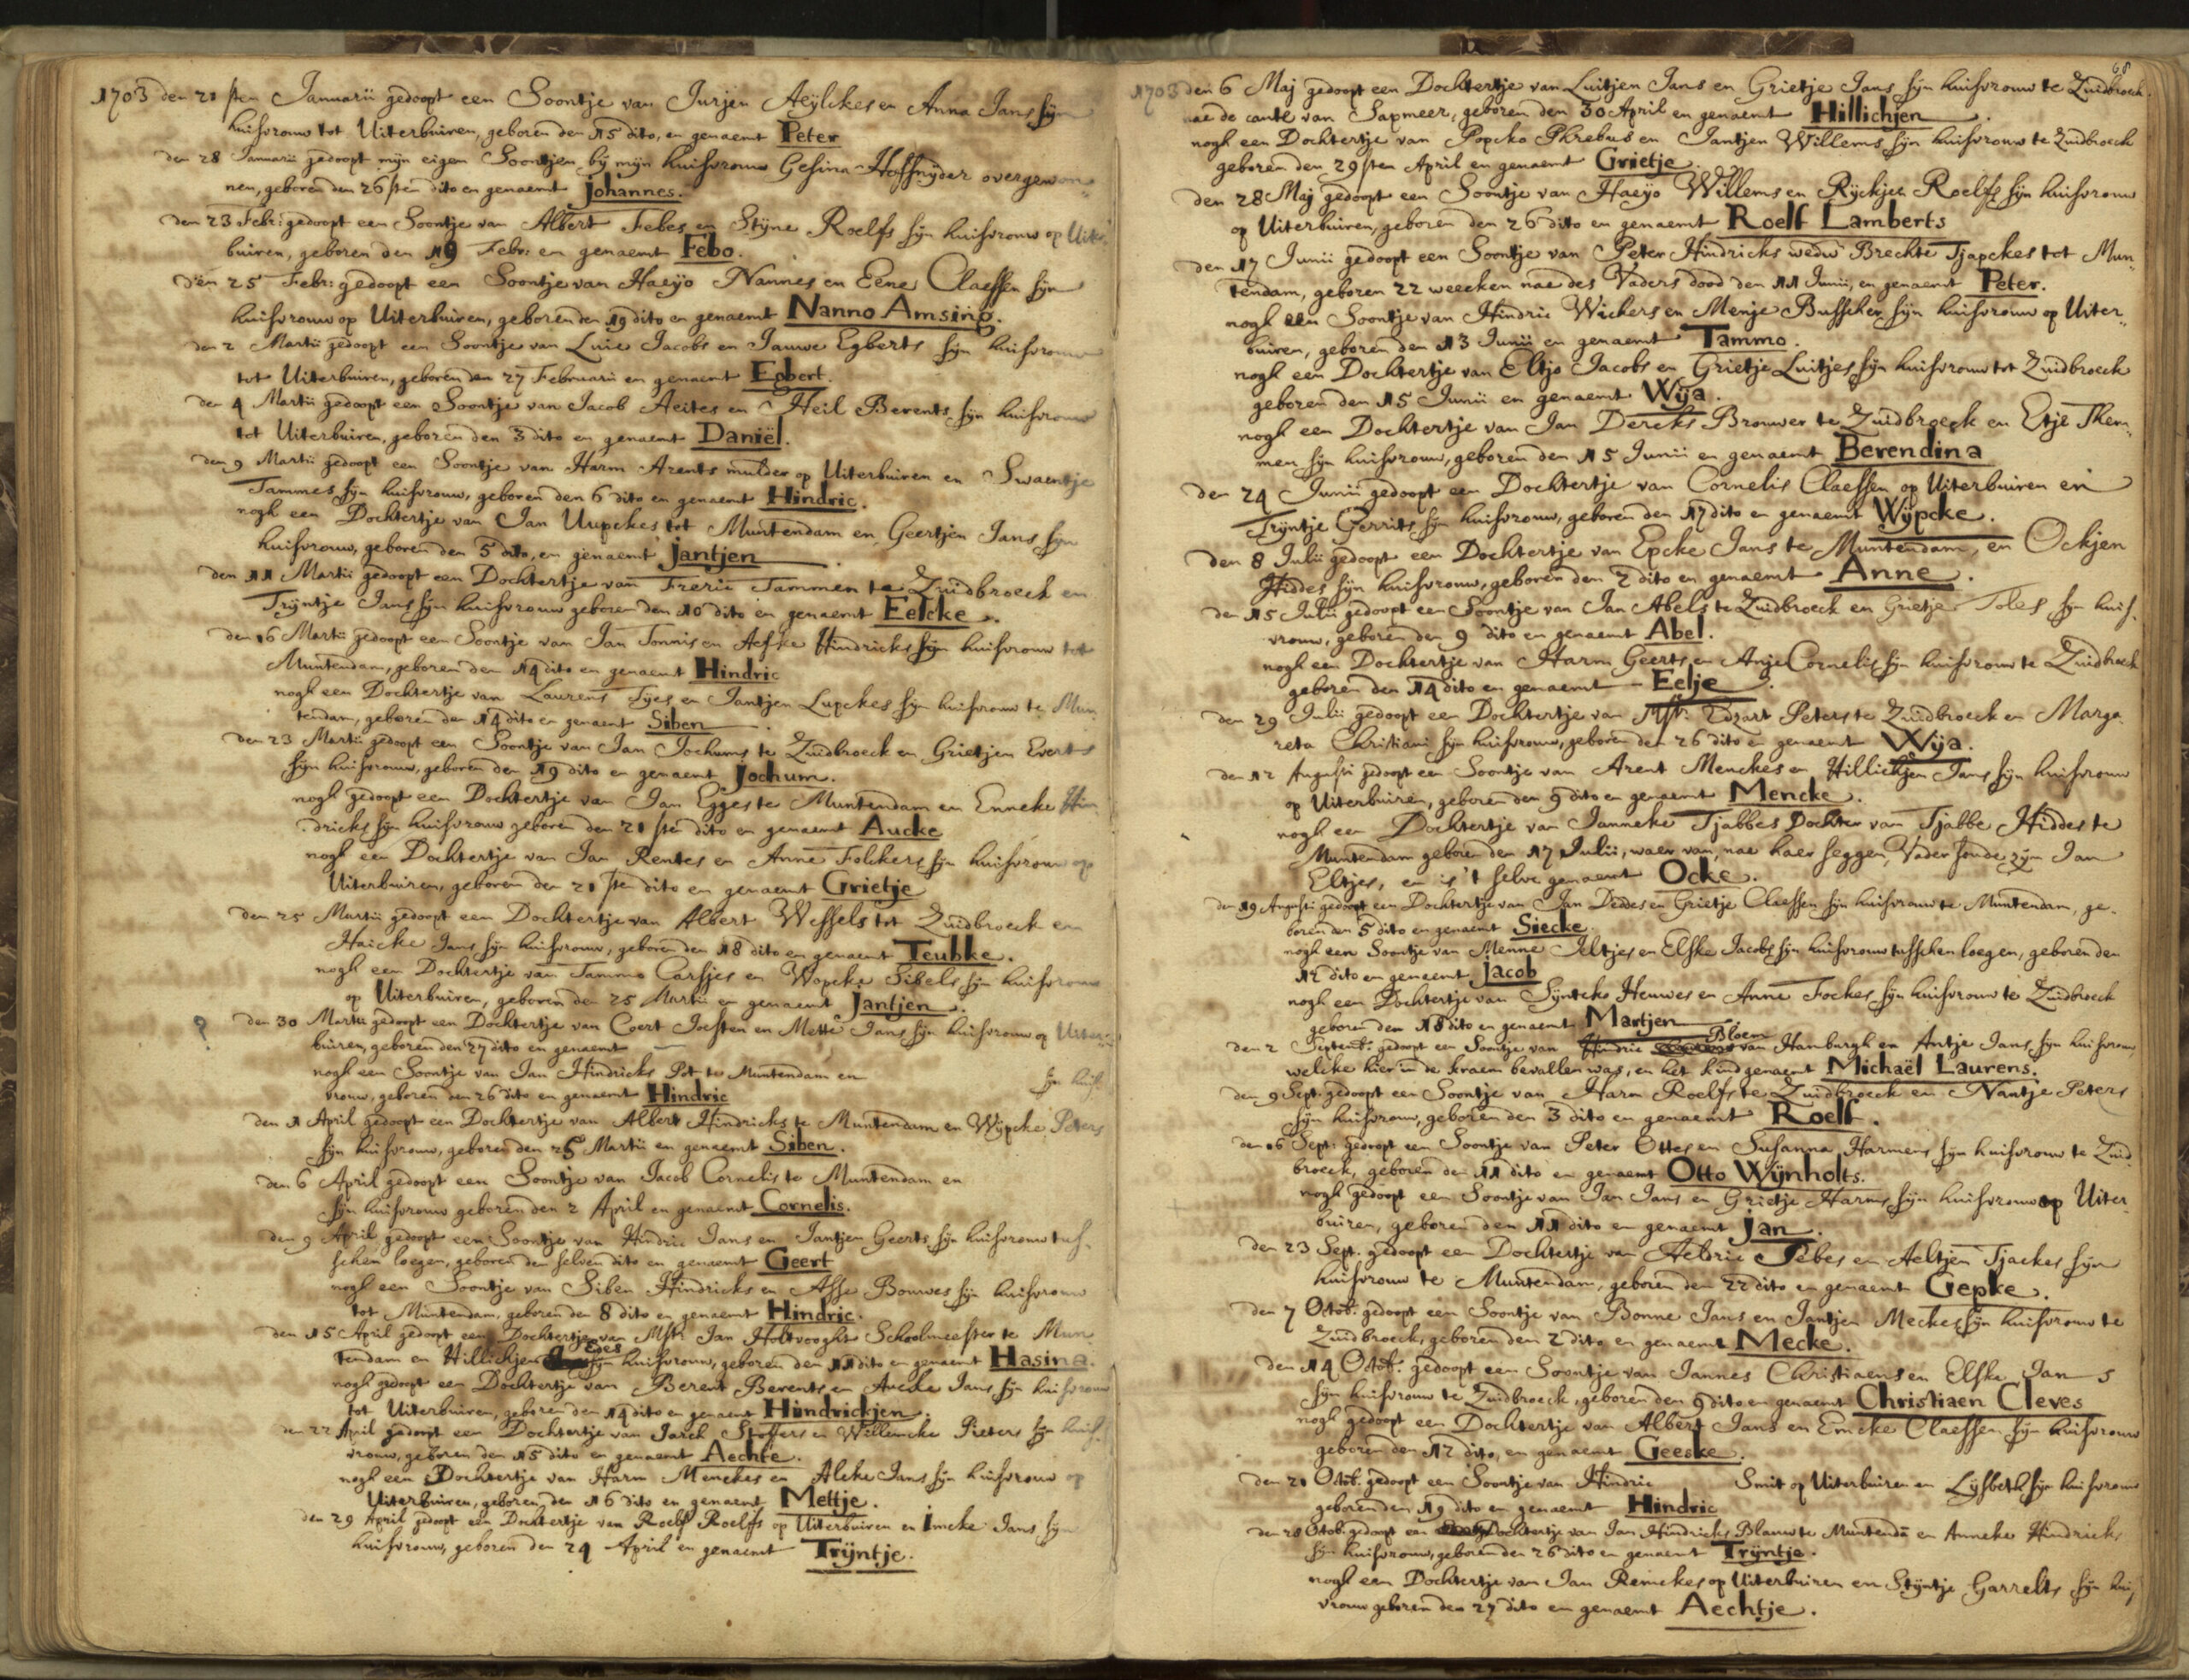 1703 den 21 sten Januarii gedoopt een Soontje van Jurjen Aeylckes en Anna Jans sijn
huisvrouw tot Uiterbuiren, geboren den 15 dito, en genaemt Peter
den 28 Januarii gedoopt mijn eigen Soontjen bij mijn huisvrouw Gesina Hoffsnijder overgewon-
nen, geboren den 26 sten dito en genaemt Johannes.
den 23 Febr: gedoopt een Soontje van Albert Febes en Stijne Roelfs sijn huisvrouw op Uiter-
buiren, geboren den 19 Febr: en genaemt Febo.
den 25 Febr: gedoopt een Soontje van Haeijo Nannes en Eene Claessen sijn
huisvrouw op Uiterbuiren, geboren den 19 dito en genaemt Nanno Amsing.
den 2 Martii gedoopt een Soontje van Luie Jacobs en Jauwe Egberts sijn huisvrouw
tot Uiterbuiren, geboren den 27 Februarii en genaemt Egbert.
den 4 Martii gedoopt een Soontje van Jacob Aeites en Heil Berents sijn huisvrouw
tot Uiterbuiren, geboren den 3 dito en genaemt Daniël.
den 9 Martii gedoopt een Soontje van Harm Arents mulder op Uiterbuiren en Swaentje
Tammes sijn huisvrouw, geboren den 6 dito en genaemt Hindric.
nogh een Dochtertje van Jan Uupckes tot Muntendam en Geertjen Jans sijn
huisvrouw, geboren den 5 dito, en genaemt Jantjen.
den 11 Martii gedoopt een Dochtertje van Freric Tammen te Zuidbroeck en
Trijntje Jans sijn huisvrouw geboren den 10 dito en genaemt Eelcke.
den 16 Martii gedoopt een Soontje van Jan Tonnis en Aefke Hindricks sijn huisvrouw tot
Muntendam, geboren den 14 dito en genaemt Hindric
nogh een Dochtertje van Laurens Tijes en Jantjen Lupckes sijn huisvrouw te Mun-
tendam, geboren den 14 dito en genaemt Siben.
den 23 Martii gedoopt een Soontje van Jan Jochums te Zuidbroeck en Grietjen Everts
sijn huisvrouw, geboren den 19 dito en genaemt Jochum.
nogh gedoopt een Dochtertje van Jan Egges te Muntendam en Enneke Hin-
dricks sijn huisvrouw geboren den 21 sten dito en genaemt Aucke
nogh een Dochtertje van Jan Rentes en Anne Folckers sijn huisvrouw op
Uiterbuiren, geboren den 21 sten dito en genaemt Grietje
den 25 Martii gedoopt een Dochtertje van Albert Wessels tot Zuidbroeck en
Haicke Jans sijn huisvrouw, geboren den 18 dito en genaemt Teubke.
nogh een Dochtertje van Tammo Carsjes en Wopcke Sibels sijn huisvrouw
op Uiterbuiren, geboren den 25 Martii en genaemt Jantjen.
? den 30 Martii gedoopt een Dochtertje van Coert Josten en Mette Jans sijn huisvrouw op Uiter-
buiren, geboren den 27 dito en genaemt
nogh een Soontje van Jan Hindricks Pot te Muntendam en sijn huis-
vrouw, geboren den 26 dito en genaemt Hindric
den 1 April gedoopt een Dochtertje van Albert Hindricks te Muntendam en Wijpcke Peters
sijn huisvrouw, geboren den 25 Martii en genaemt Siben.
den 6 April gedoopt een Soontje van Jacob Cornelis te Muntendam en
sijn huisvrouw geboren den 2 April en genaemt Cornelis.
den 9 April gedoopt een Soontje van Hindric Jans en Jantjen Geerts sijn huisvrouw tus-
schen loegen, geboren den selven dito en genaemt Geert
nogh een Soontje van Siben Hindricks en Asse Bouwes sijn huisvrouw
tot Muntendam, geboren den 8 dito en genaemt Hindric.
den 15 April gedoopt een Dochtertje van Mstr Jan Holtvooght Schoolmeester te Mun
tendam en Hillichjen Edes sijn huisvrouw, geboren den 11 dito en genaemt Hasina.
nogh gedoopt een Dochtertje van Berent Berents en Aucke Jans sijn huisvrouw
tot Uiterbuiren, geboren den 14 dito en genaemt Hindrickjen.
den 22 April gedoopt een Dochtertje van Jarch Stoffers en Willemcke Pieters sijn huis-
vrouw, geboren den 15 dito en genaemt Aechte.
nogh een Dochtertje van Harm Menckes en Aleke Jans sijn huisvrouw op
Uiterbuiren, geboren den 16 dito en genaemt Mettje.
den 29 April gedoopt een Dochtertje van Roelf Roelfs op Uiterbuiren en Imcke Jans sijn
huisvrouw, geboren den 24 April en genaemt Trijntje.
68
1703 den 6 Maj gedoopt een Dochtertje van Luitjen Jans en Grietje Jans sijn huisvrouw te Zuidbroeck.
nae de cante van Sapmeer, geboren den 30 April en genaemt Hillichjen.
nogh een Dochtertje van Popcko Phrebus en Jantjen Willems sijn huisvrouw te Zuidbroeck
geboren den 29 sten April en genaemt Grietje.
den 28 Maj gedoopt een Soontje van Haeijo Willems en Rijckjen Roelfs sijn huisvrouw
op Uiterbuiren, geboren den 26 dito en genaemt Roelf Lamberts
den 17 Junii gedoopt een Soontje van Peter Hindricks wedw Brechte Tjapckes tot Mun-
tendam, geboren 22 weecken nae des Vaders dood den 11 Junii, en genaemt Peter.
nogh een Soontje van Hindric Wichers en Menje Busscher sijn huisvrouw op Uiter-
buiren, geboren den 13 Junii en genaemt Tammo.
nogh een Dochtertje van Eltjo Jacobs en Grietje Luitjes sijn huisvrouw tot Zuidbroeck
geboren den 15 Junii en genaemt Wija.
nogh een Dochtertje van Jan Dercks Brouwer te Zuidbroeck en Etje Them-
men sijn huisvrouw, geboren den 15 Junii en genaemt Berendina
den 24 Junii gedoopt een Dochtertje van Cornelis Claessen op Uiterbuiren en
Trijntje Gerrits sijn huisvrouw, geboren den 17 dito en genaemt Wijpcke.
den 8 Julii gedoopt een Dochtertje van Epcke Jans te Muntendam, en Ockjen
Hiddes sijn huisvrouw, geboren den 2 dito en genaemt Anne.
den 15 Julii gedoopt een Soontje van Jan Abels te Zuidbroeck en Grietje Toles sijn huis-
vrouw, geboren den 9 dito en genaemt Abel.
nogh een Dochtertje van Harm Geerts en Anje Cornelis sijn huisvrouw te Zuidbroeck
geboren den 14 dito en genaemt - Eelje.
den 29 Julii gedoopt een Dochtertje van Mstr. Edzart Peters te Zuidbroeck en Marga-
reta Christiani sijn huisvrouw, geboren den 26 dito en genaemt Wija.
den 12 Augusti gedoopt een Soontje van Arent Menckes en Hillichjen Jans sijn huisvrouw
op Uiterbuiren, geboren den 9 dito en genaemt Mencke.
nogh een Dochtertje van Janneke Tjabbes Dochter van Tjabbe Hiddes te
Muntendam geboren den 17 Julii, waer van, nae haer seggen, Vader soude zijn Jan
Eltjes, en is 't selve genaemt Ocke.
den 19 Augusti gedoopt een Dochtertje van Jan Deddes en Grietje Claessen sijn huisvrouw te Muntendam, ge-
boren den 5 dito en genaemt Siecke.
nogh een Soontje van Menne Jeltjes en Elske Jacobs sijn huisvrouw tusschen loegen, geboren den
12 dito en genaemt Jacob
nogh een Dochtertje van Sijntcko Heuwes en Anne Fockes sijn huisvrouw te Zuidbroeck
geboren den 18 dito en genaemt Martjen
den 2 Septemb: gedoopt een Soontje van Hindric Bloem van Hamburgh en Antje Jans sijn huisvrouw,
welcke hier in de kraem bevallen was, en het kind genaemt Michaël Laurens.
den 9 Sept: gedoopt een Soontje van Harm Roelfs te Zuidbroeck en Nantje Peters
sijn huisvrouw, geboren den 3 dito en genaemt Roelf.
den 16 Sept: gedoopt een Soontje van Peter Ottes en Susanna Harmens sijn huisvrouw te Zuid-
broeck, geboren den 11 dito en genaemt Otto Wijnholts.
nogh gedoopt een Soontje van Jan Jans en Grietje Harms sijn huisvrouw op Uiter-
buiren, geboren den 11 dito en genaemt Jan.
den 23 Sept. gedoopt een Dochtertje van Aeldric Febes en Aeltjen Tjackes sijn
huisvrouw te Muntendam, geboren den 22 dito en genaemt Gepke.
den 7 Octob: gedoopt een Soontje van Bonne Jans en Jantjen Meckes sijn huisvrouw te
Zuidbroeck, geboren den 2 dito en genaemt Mecke.
den 14 Octob: gedoopt een Soontje van Jannes Christiaens en Elske Jan s
sijn huisvrouw te Zuidbroeck, geboren den 9 dito en genaemt Christiaen Cleves
nogh gedoopt een Dochtertje van Albert Jans en Emcke Claessen sijn huisvrouw
geboren den 12 dito, en genaemt Geeske.
den 21 Octob. gedoopt een Soontje van Hindric Smit op Uiterbuiren en Lijsbeth sijn huisvrouw
geboren den 19 dito en genaemt Hindric
den 28 Octob. gedoopt een Dochtertje van Jan Hindricks Blauw te Muntendã en Anneke Hindricks
sijn huisvrouw, geboren den 26 dito en genaemt Trijntje.
nogh een Dochtertje van Jan Remckes op Uiterbuiren en Stijntje Garrelts sijn huis
vrouw geboren den 27 dito en genaemt Aechtje.